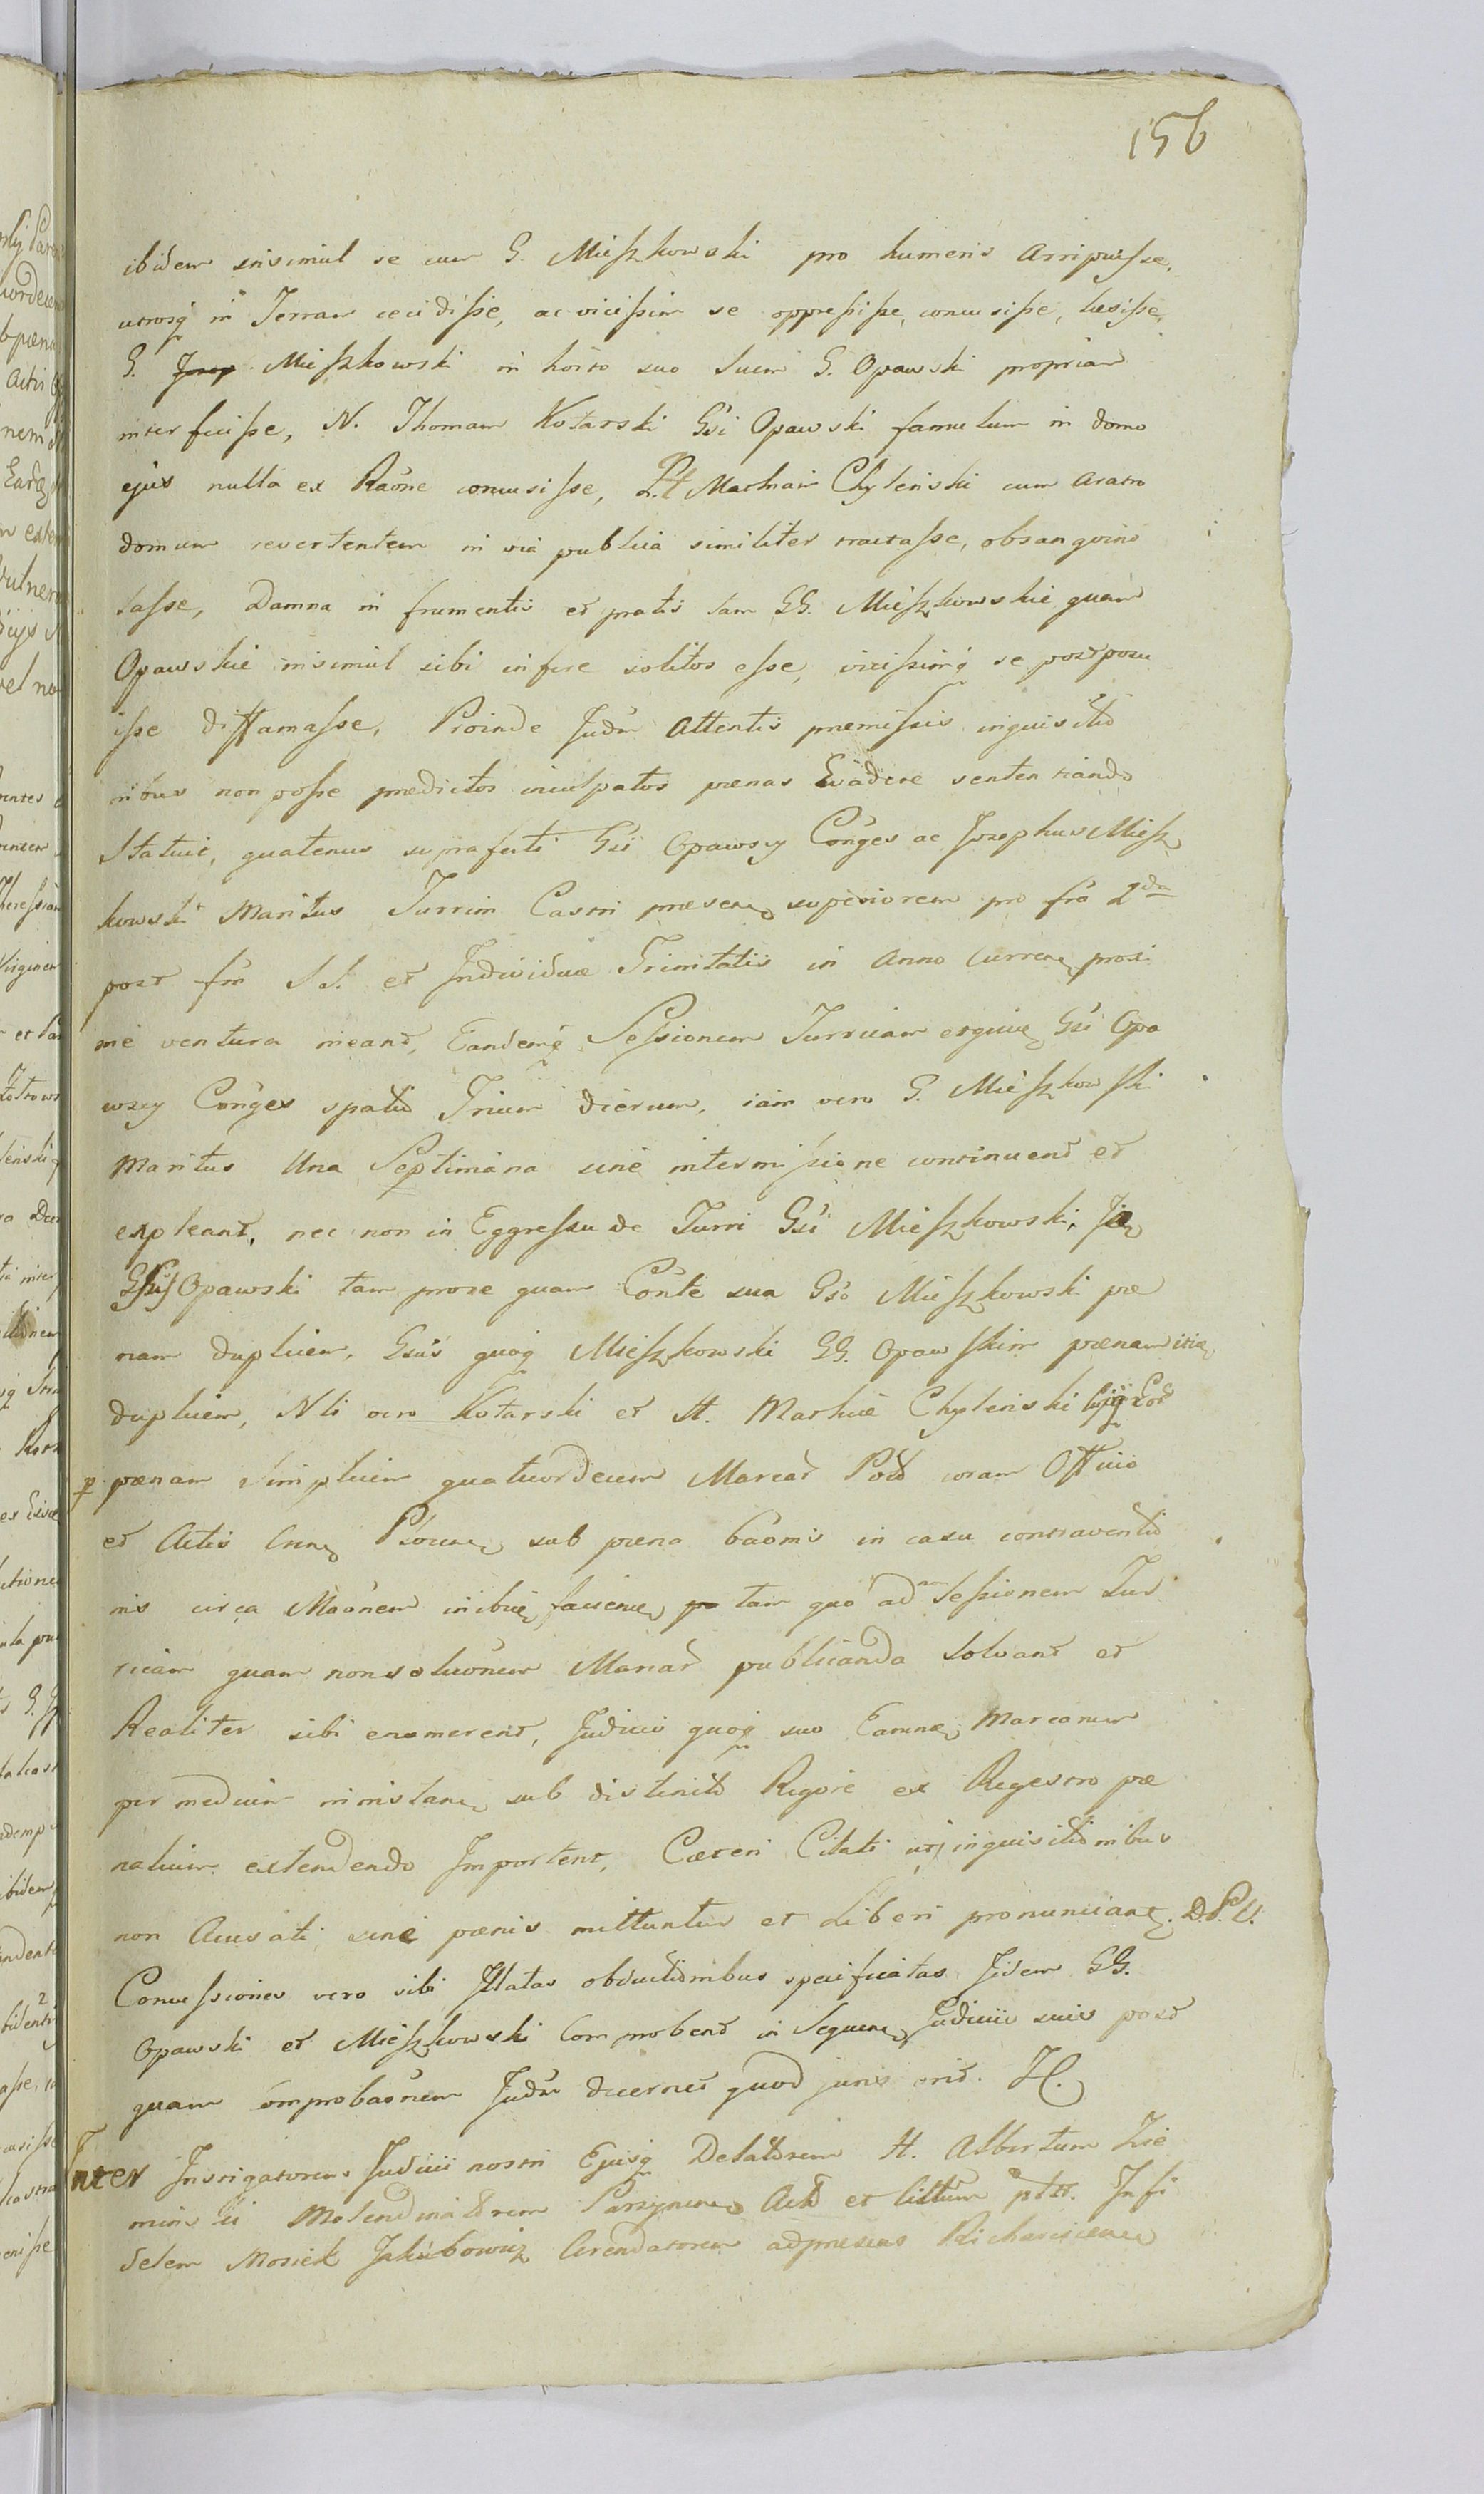 156
ibidem insimul se cum G. Mieszkowski pro humeris arripuisse,
utrosq in Terram cecidisse, ac vicissim se oppressisse, concusisse, laesisse,
G. Mieszkowski in horto suo Suem G. Opawski propriam
interfecisse, N. Thomam Kotarski Gsi Opawski famulum in domo
ejus nulla ex Raone concusisse, Mathiam Chylenski cum aratro
domum revertentem in via publica similiter tractasse, obsangvino
tasse, Damna in frumentis et pratis tam GG. Mieszkowskie quam
Opawskie insimul sibi inferre solitos esse, vicissimq se postposu
isse diffamasse, Proinde Judm Attentis praemissis inquisitio
nibus non posse praedictos inculpatos paenas Evadere sententiando
Statuit, quatenus suprafati Gsi Opawscy Conges ac Josephus Miesz
kowski Maritus Turrim Castri praesen superiorem pro fra 2da
post fm SS. et Individuae Trinitatis in Anno Curren proxi
me ventura ineant, Eandemq Sessionem Turricam Gsi Opa
wscy Conges spatio Trium dierum, iam vero G. Mieszkowski
Maritus Una Septimana sine intermissione continuent et
expleant, nec non in Eggressu de Turri Gsi Mieszkowski,
Gsus Opawski tam pro se quam Conte sua Gso Mieszkowski pae
nam duplicem, Gsus quoq Mieszkowski GG. Opawskim paenam itid
duplicem, Nli vero Kotarski et H. Mathiae Chylenski
p paenam Simplicem quatuordecim Marcar Polo coram Officio
et Actis Cren Plocen sub paena baonis in casu contraventio
nis circa Maonem inibi faciend tam quo ad non Sessionem Tur
ricam quam nonsolutionem Marcar publicanda Solvant et
Realiter sibi enumerent, Judicio quoq suo Earund Marcarum
per medium ministan sub distincto Rigore ex Regestro pae
nalium extendendo Importent, Caeteri Citati uti inquisitionibus
non Accusati sine paenis mittuntur et Liberi pronunciant. D.P.V.
Concussiones vero sibi Illatas obductionibus specificatas Iidem GG.
Opawski et Mieszkowski Comprobent in Sequen Judiciis suis post
quam comprobaonem Judm decernet quod juris erit.
Inter Instigatorem Judicii nostri Ejusq Delatorem H. Albertum Zie
minski Molendinatorem Actor et Citatum Infi
delem Mosiek Jakubowicz Arendatorem adpraesens